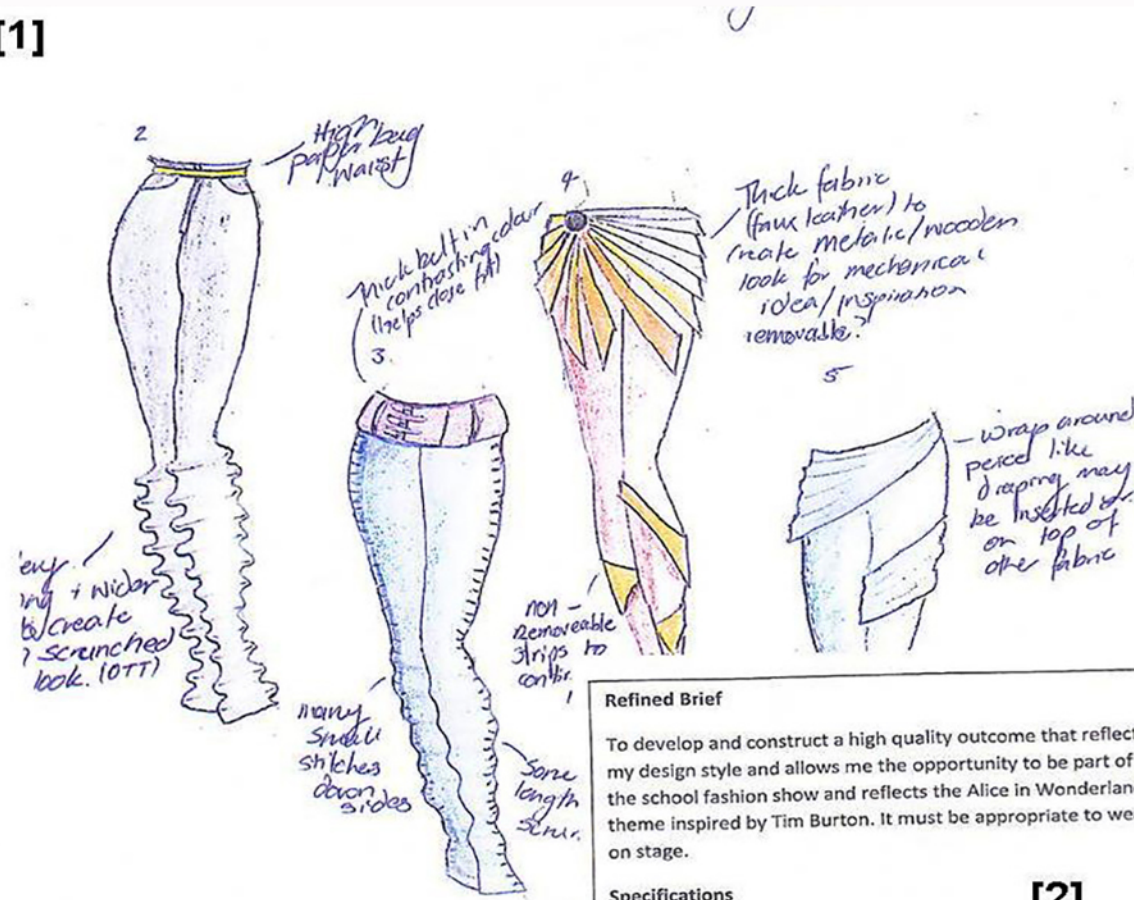 [1]
2
High
paper bag
waist
thick belt in
contrasting colour
(helps close fit)
3.
4
Thick fabric
(faux leather) to
create metalic/wooden
look for mechanical
idea/inspiration
removable?
5
- wrap around
peice like
draping may
be inserted or
on top of
other fabric
+ wider
create
scrunched
look. (OTT)
many
small
stitches
down
sides
Some
length
non -
removeable
strips to
Refined Brief
To develop and construct a high quality outcome that reflect
my design style and allows me the opportunity to be part of
the school fashion show and reflects the Alice in Wonderlan
theme inspired by Tim Burton. It must be appropriate to we
on stage.
Specifications
[2]